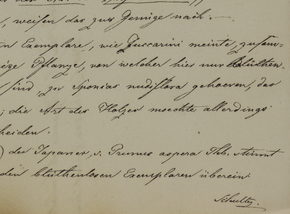 , weisen das zur Genüge nach.
en Exemplare, wie Zuccarini meinte, zusam-
ige Pflanze, von welcher hier nur blüthen-
sind zu Sponias gehoeren, das
; die Art des Holzes moechte allerdings
heiden.
) der Japaner, s. Prunus aspera Thb. stimt
den blüthenlosen Exemplaren überein
Schultz.